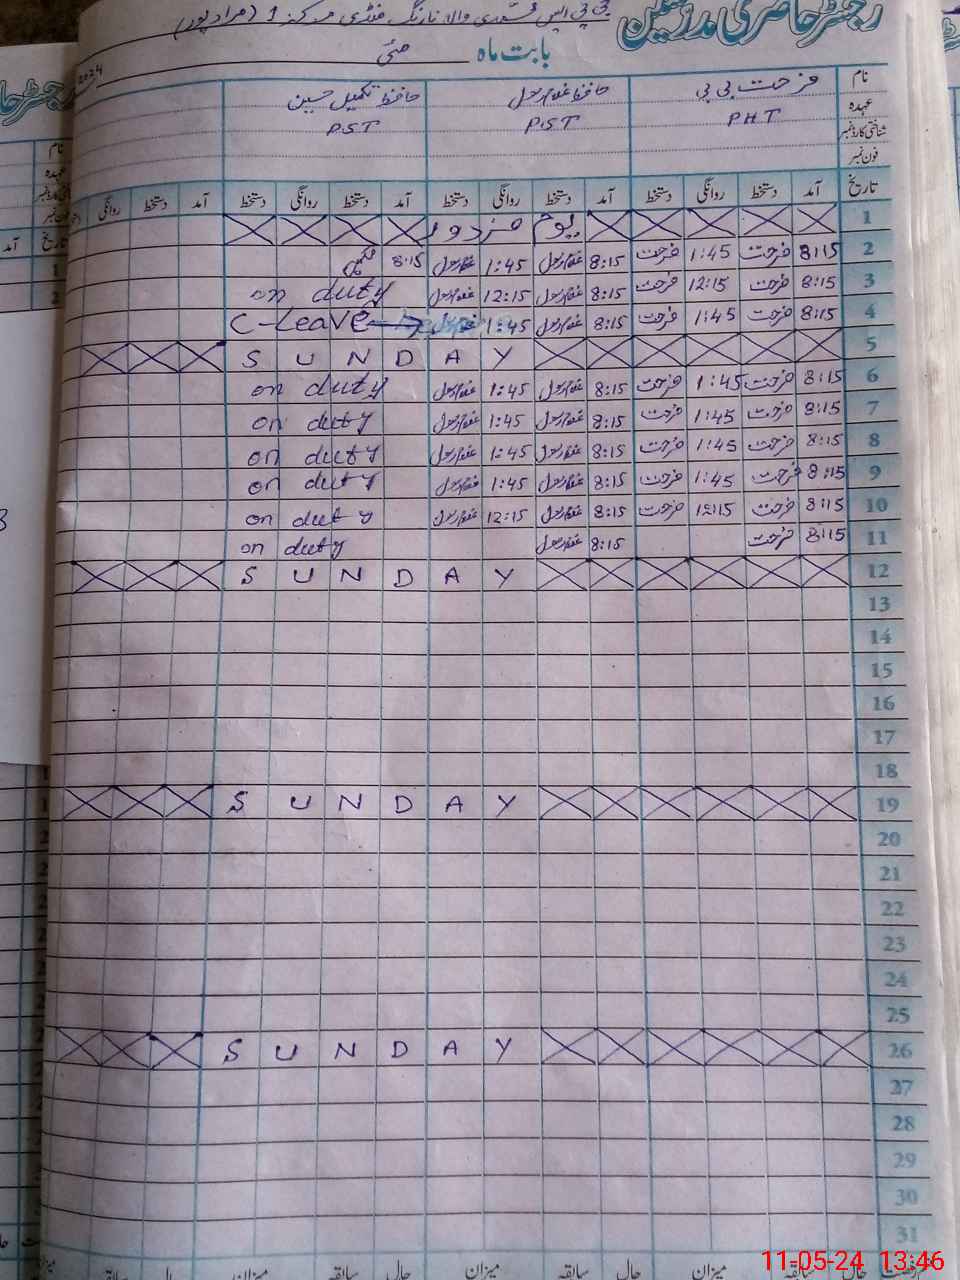 رجسٹر حاضری مدرسین
نارنگ منڈی مرکز 1 (مراد پور)
بابت ماہ مئی 2024
نام فرحت بی بی حافظ غلام رسول حافظ تکمیل حسین
عہدہ PHT PST PST
شناختی کارڈ نمبر
فون نمبر
تاریخ آمد دستخط روانگی دستخط آمد دستخط روانگی دستخط آمد دستخط روانگی دستخط آمد دستخط روانگی
1 یوم مزدور
2 8:15 فرحت 1:45 فرحت 8:15 غلام رسول 1:45 غلام رسول 8:15
3 8:15 فرحت 12:15 فرحت 8:15 غلام رسول 12:15 غلام رسول on duty
4 8:15 فرحت 1:45 فرحت 8:15 غلام رسول 1:45 غلام رسول C-Leave
5 SUNDAY
6 8:15 فرحت 1:45 فرحت 8:15 غلام رسول 1:45 غلام رسول on duty
7 8:15 فرحت 1:45 فرحت 8:15 غلام رسول 1:45 غلام رسول on duty
8 8:15 فرحت 1:45 فرحت 8:15 غلام رسول 1:45 غلام رسول on duty
9 8:15 فرحت 1:45 فرحت 8:15 غلام رسول 1:45 غلام رسول on duty
10 8:15 فرحت 12:15 فرحت 8:15 غلام رسول 12:15 غلام رسول on duty
11 8:15 فرحت 8:15 غلام رسول on duty
12 SUNDAY
13
14
15
16
17
18
19 SUNDAY
20
21
22
23
24
25
26 SUNDAY
27
28
29
30
31
حال سابقہ میزان حال سابقہ میزان حال سابقہ
11-05-24 13:46